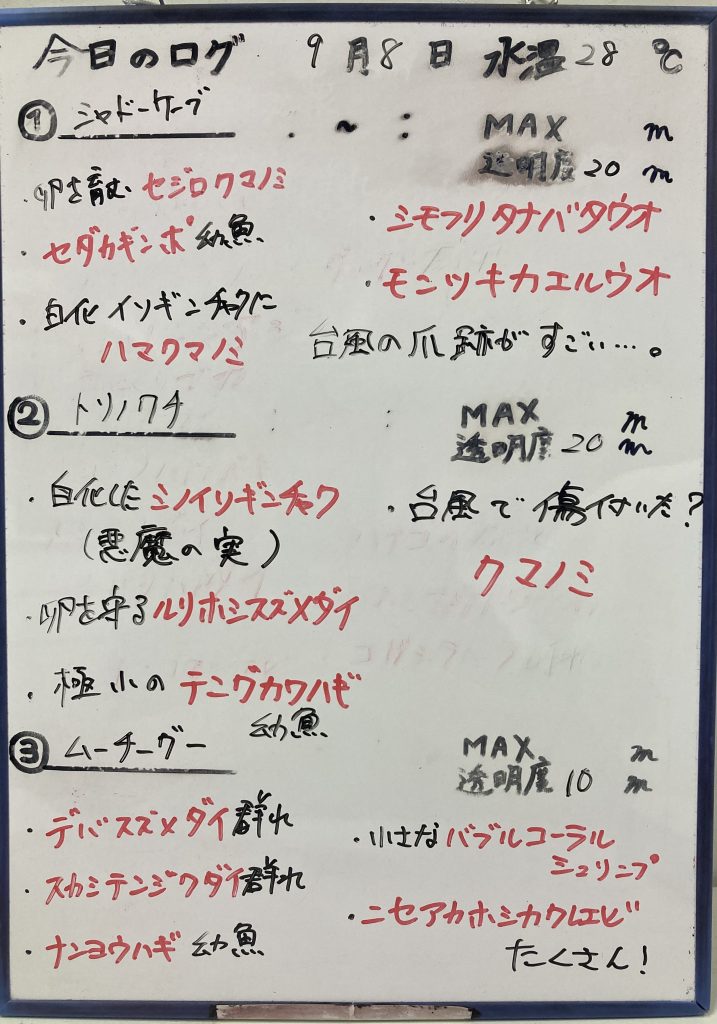 今日のログ 9月8日 水温28℃
① シャドーケーブ . ~ : MAX m
透明度20m
・卵を育む セジロクマノミ
・セダカギンポ 幼魚
・白化イソギンチャクに
ハマクマノミ
・シモフリタナバタウオ
・モンツキカエルウオ
台風の爪跡がすごい…。
② トリノクチ : MAX m
透明度20m
・白化した シライソギンチャク
(悪魔の実)
・卵を守る ルリホシスズメダイ
・極小の テングカワハギ
幼魚
・台風で傷付いた?
クマノミ
③ ムーチーグー MAX m
透明度10m
・デバスズメダイ 群れ
・スカシテンジクダイ 群れ
・ナンヨウハギ 幼魚
・小さな バブルコーラル
シュリンプ
・ニセアカホシカクレエビ
たくさん!